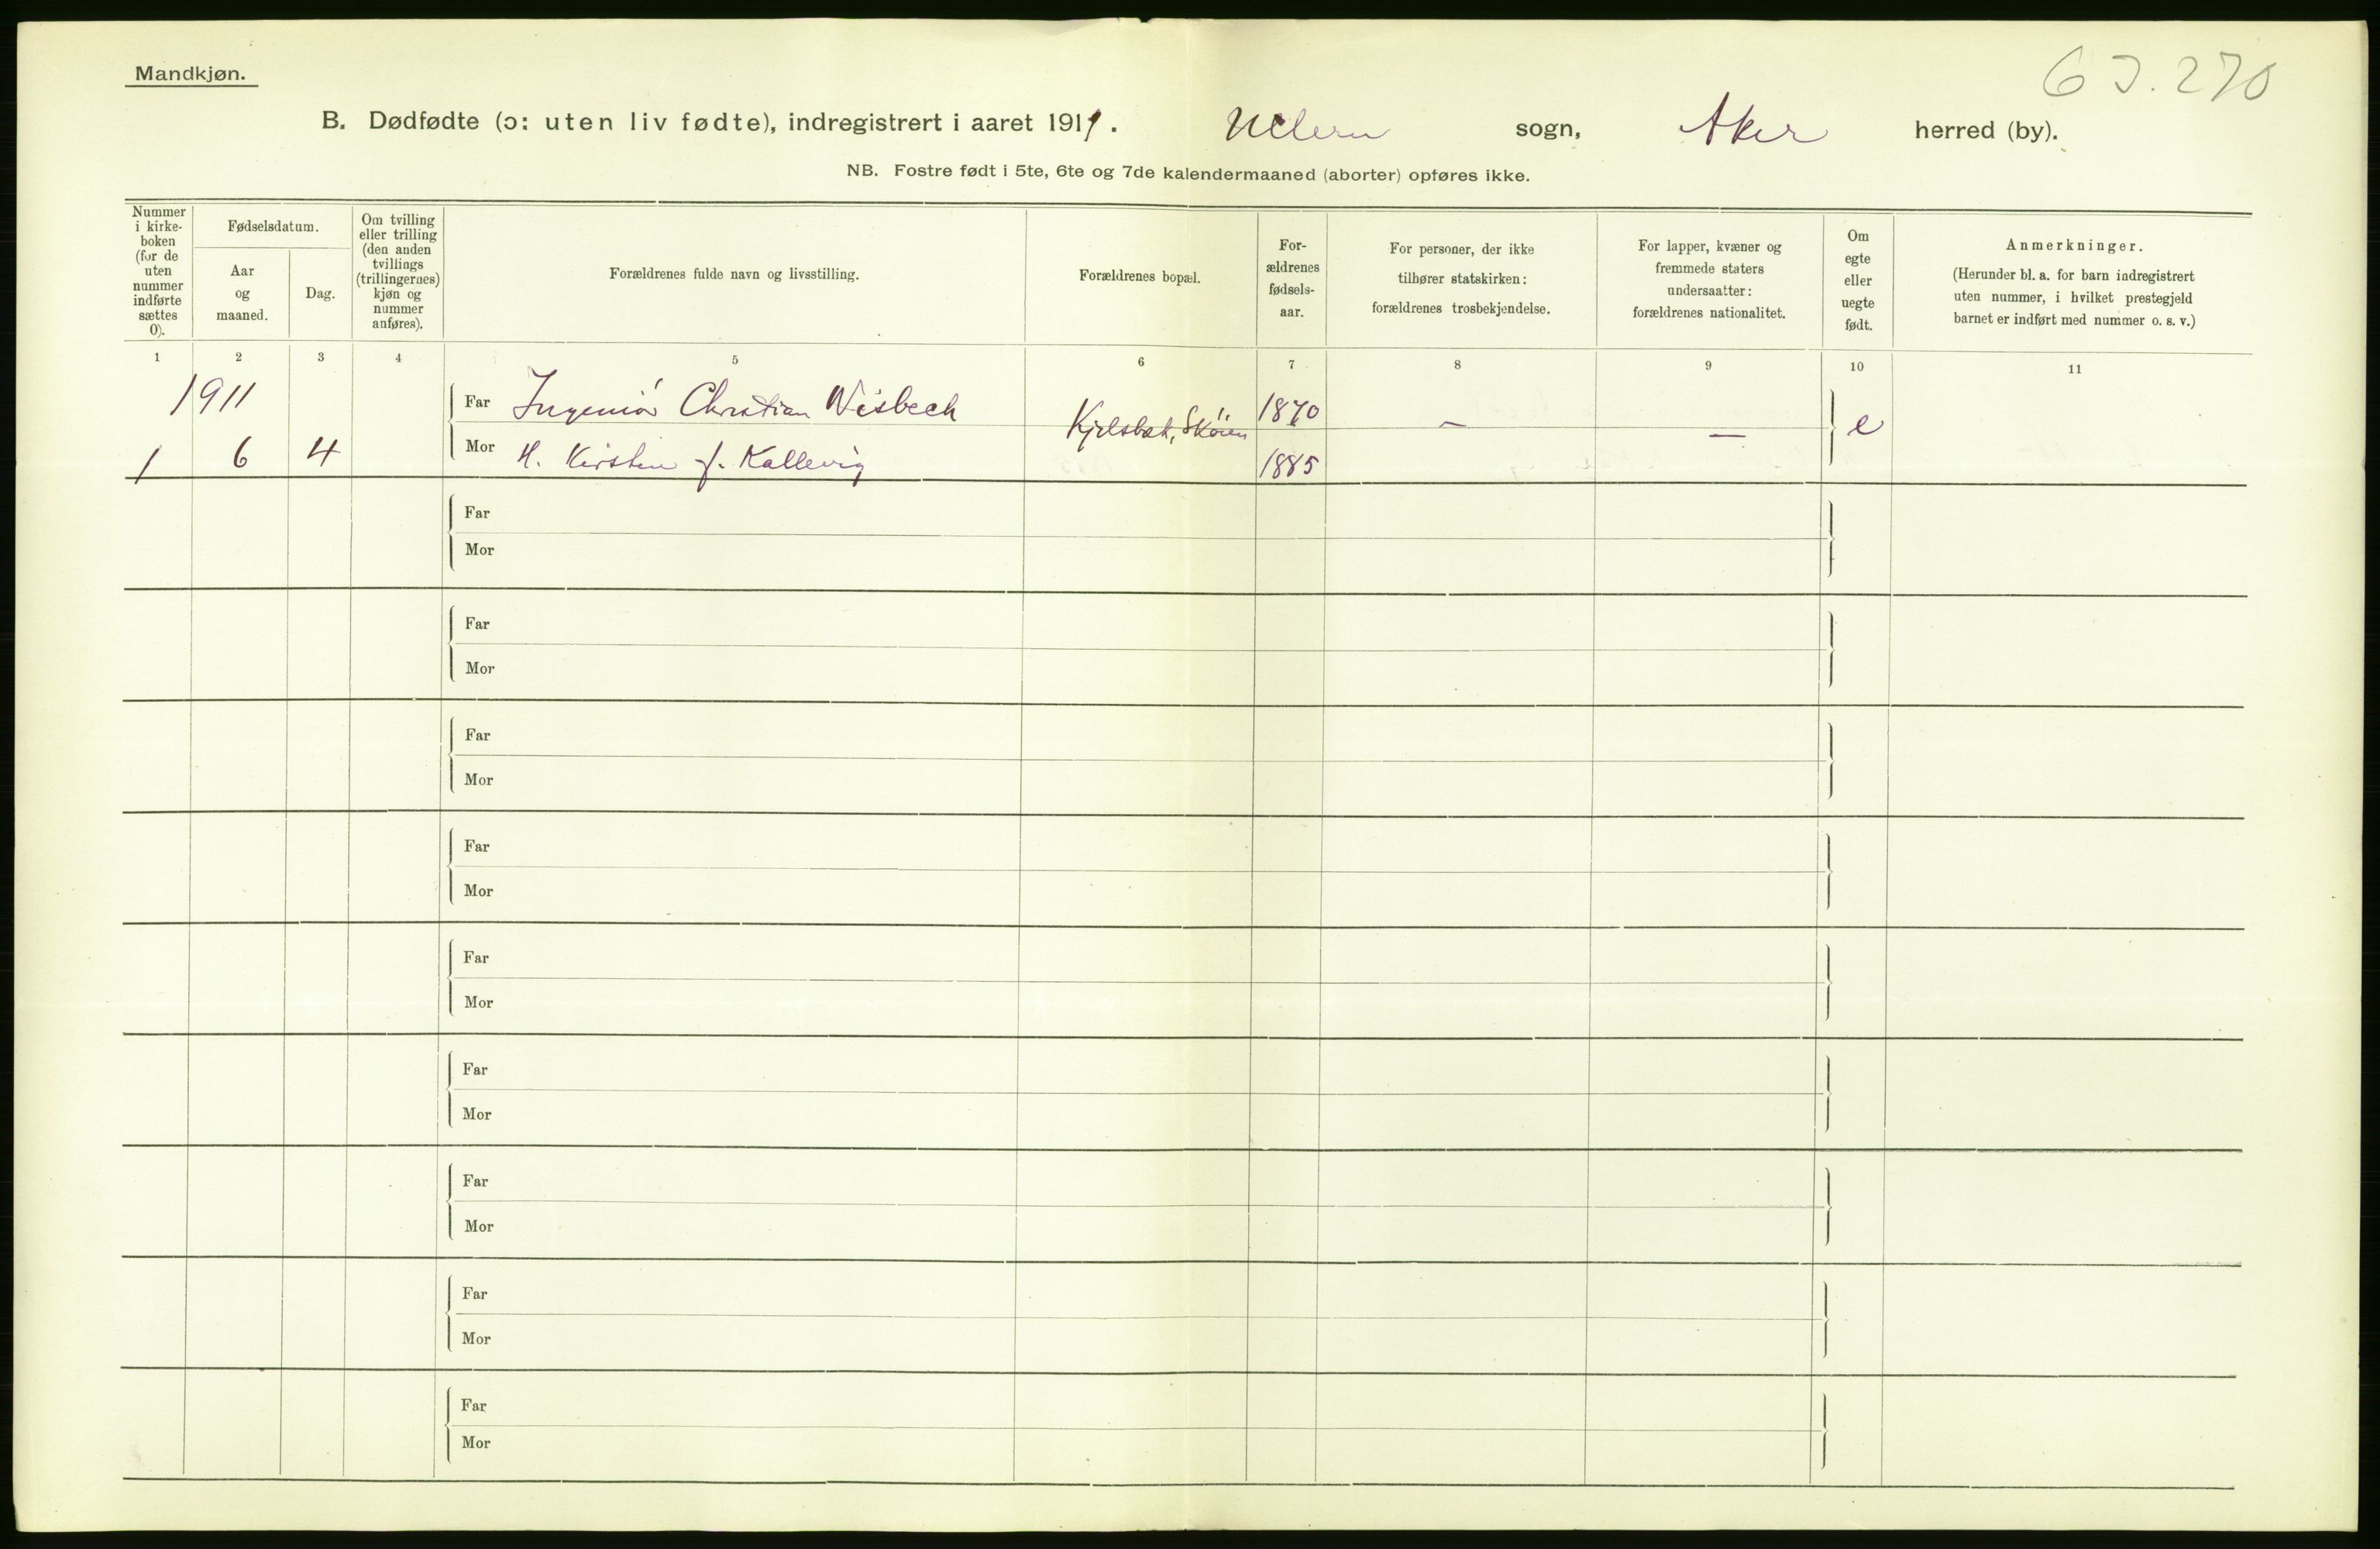 Mandkjøn.
63.270
B. Dødfødte (ɔ: uten liv fødte), indregistrert i aaret 1911. Ullern sogn, Aker herred (by).
NB. Fostre født i 5te, 6te og 7de kalendermaaned (aborter) opføres ikke.
Nummer
i kirke-
boken
(for de
uten
nummer
indførte
sættes
0).
Fødselsdatum.
Aar
og
maaned.
Dag.
Om tvilling
eller trilling
(den anden
tvillings
(trillingernes)
kjøn og
nummer
anføres).
Forældrenes fulde navn og livsstilling.
Forældrenes bopæl.
For-
ældrenes
fødsels-
aar.
For personer, der ikke
tilhører statskirken:
forældrenes trosbekjendelse.
For lapper, kvæner og
fremmede staters
undersaatter:
forældrenes nationalitet.
Om
egte
eller
uegte
født.
Anmerkninger.
(Herunder bl. a. for barn indregistrert
uten nummer, i hvilket prestegjeld
barnet er indført med nummer o. s. v.)
1 2 3 4 5 6 7 8 9 10 11
1911
Far Ingeniör Christian Wisbech 1870
Kjelsbæk, Sköien — — e
1 6 4 Mor H. Kirsten f. Kallevig 1885
Far
Mor
Far
Mor
Far
Mor
Far
Mor
Far
Mor
Far
Mor
Far
Mor
Far
Mor
Far
Mor